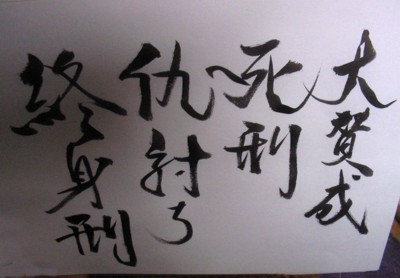 大賛成
死刑
仇討ち
終身刑